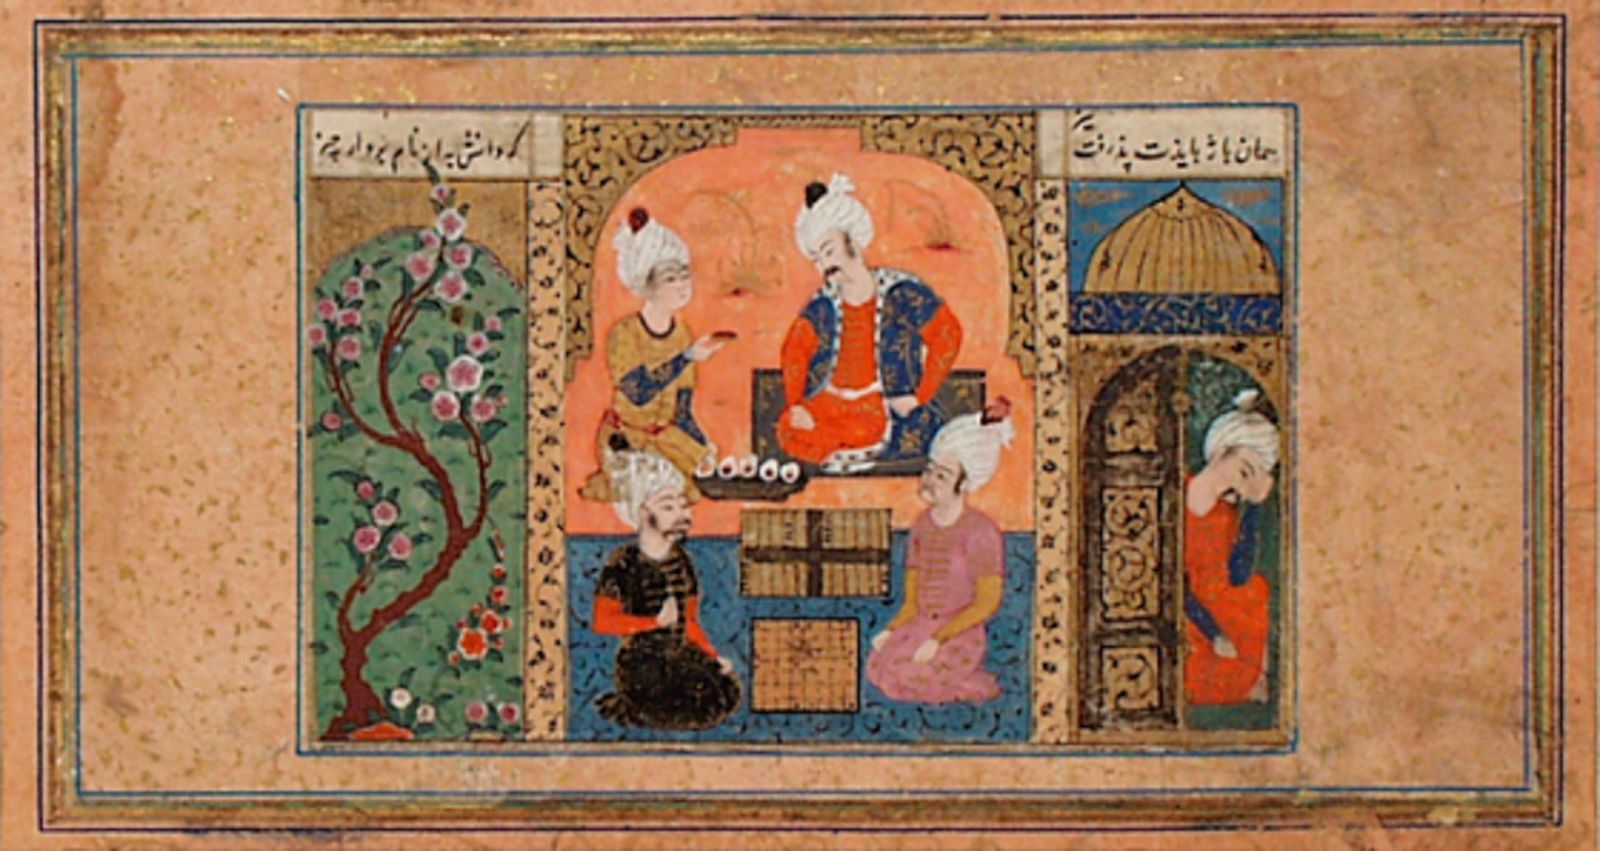 همان باژ بایذت پذرفت نیز
که دانش به از نام بردار چیز